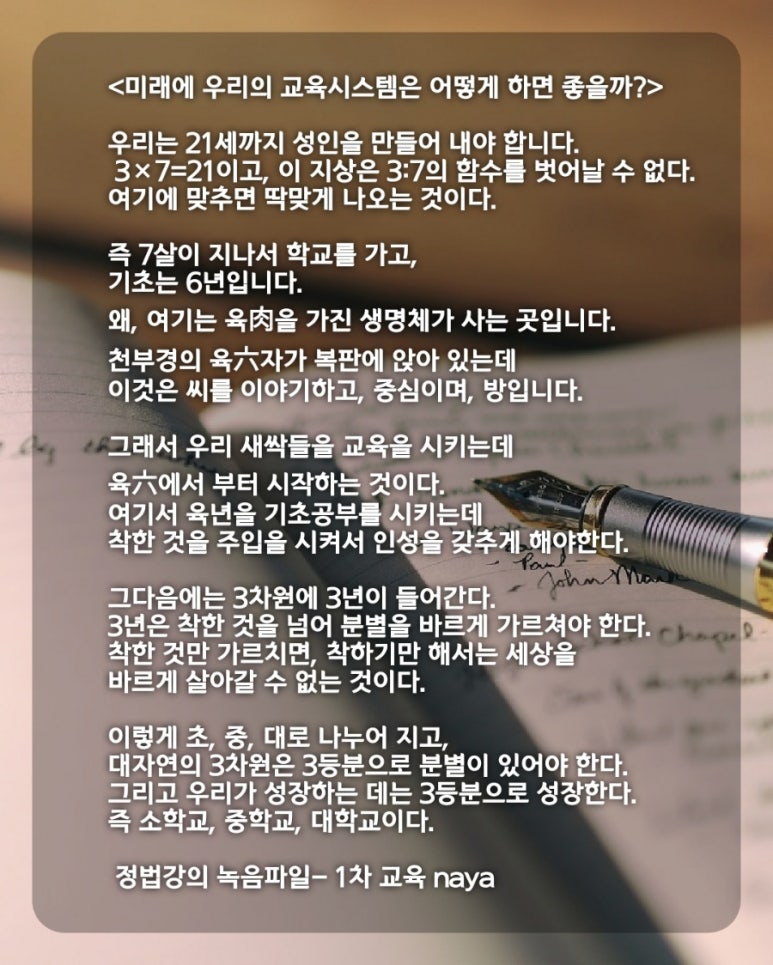 <미래에 우리의 교육시스템은 어떻게 하면 좋을까?>
우리는 21세까지 성인을 만들어 내야 합니다.
3×7=21이고, 이 지상은 3:7의 함수를 벗어날 수 없다.
여기에 맞추면 딱맞게 나오는 것이다.
즉 7살이 지나서 학교를 가고,
기초는 6년입니다.
왜, 여기는 육肉을 가진 생명체가 사는 곳입니다.
천부경의 육六자가 복판에 앉아 있는데
이것은 씨를 이야기하고, 중심이며, 방입니다.
그래서 우리 새싹들을 교육을 시키는데
육六에서 부터 시작하는 것이다.
여기서 육년을 기초공부를 시키는데
착한 것을 주입을 시켜서 인성을 갖추게 해야한다.
그다음에는 3차원에 3년이 들어간다.
3년은 착한 것을 넘어 분별을 바르게 가르쳐야 한다.
착한 것만 가르치면, 착하기만 해서는 세상을
바르게 살아갈 수 없는 것이다.
이렇게 초, 중, 대로 나누어 지고,
대자연의 3차원은 3등분으로 분별이 있어야 한다.
그리고 우리가 성장하는 데는 3등분으로 성장한다.
즉 소학교, 중학교, 대학교이다.
정법강의 녹음파일- 1차 교육 naya
Paul
John